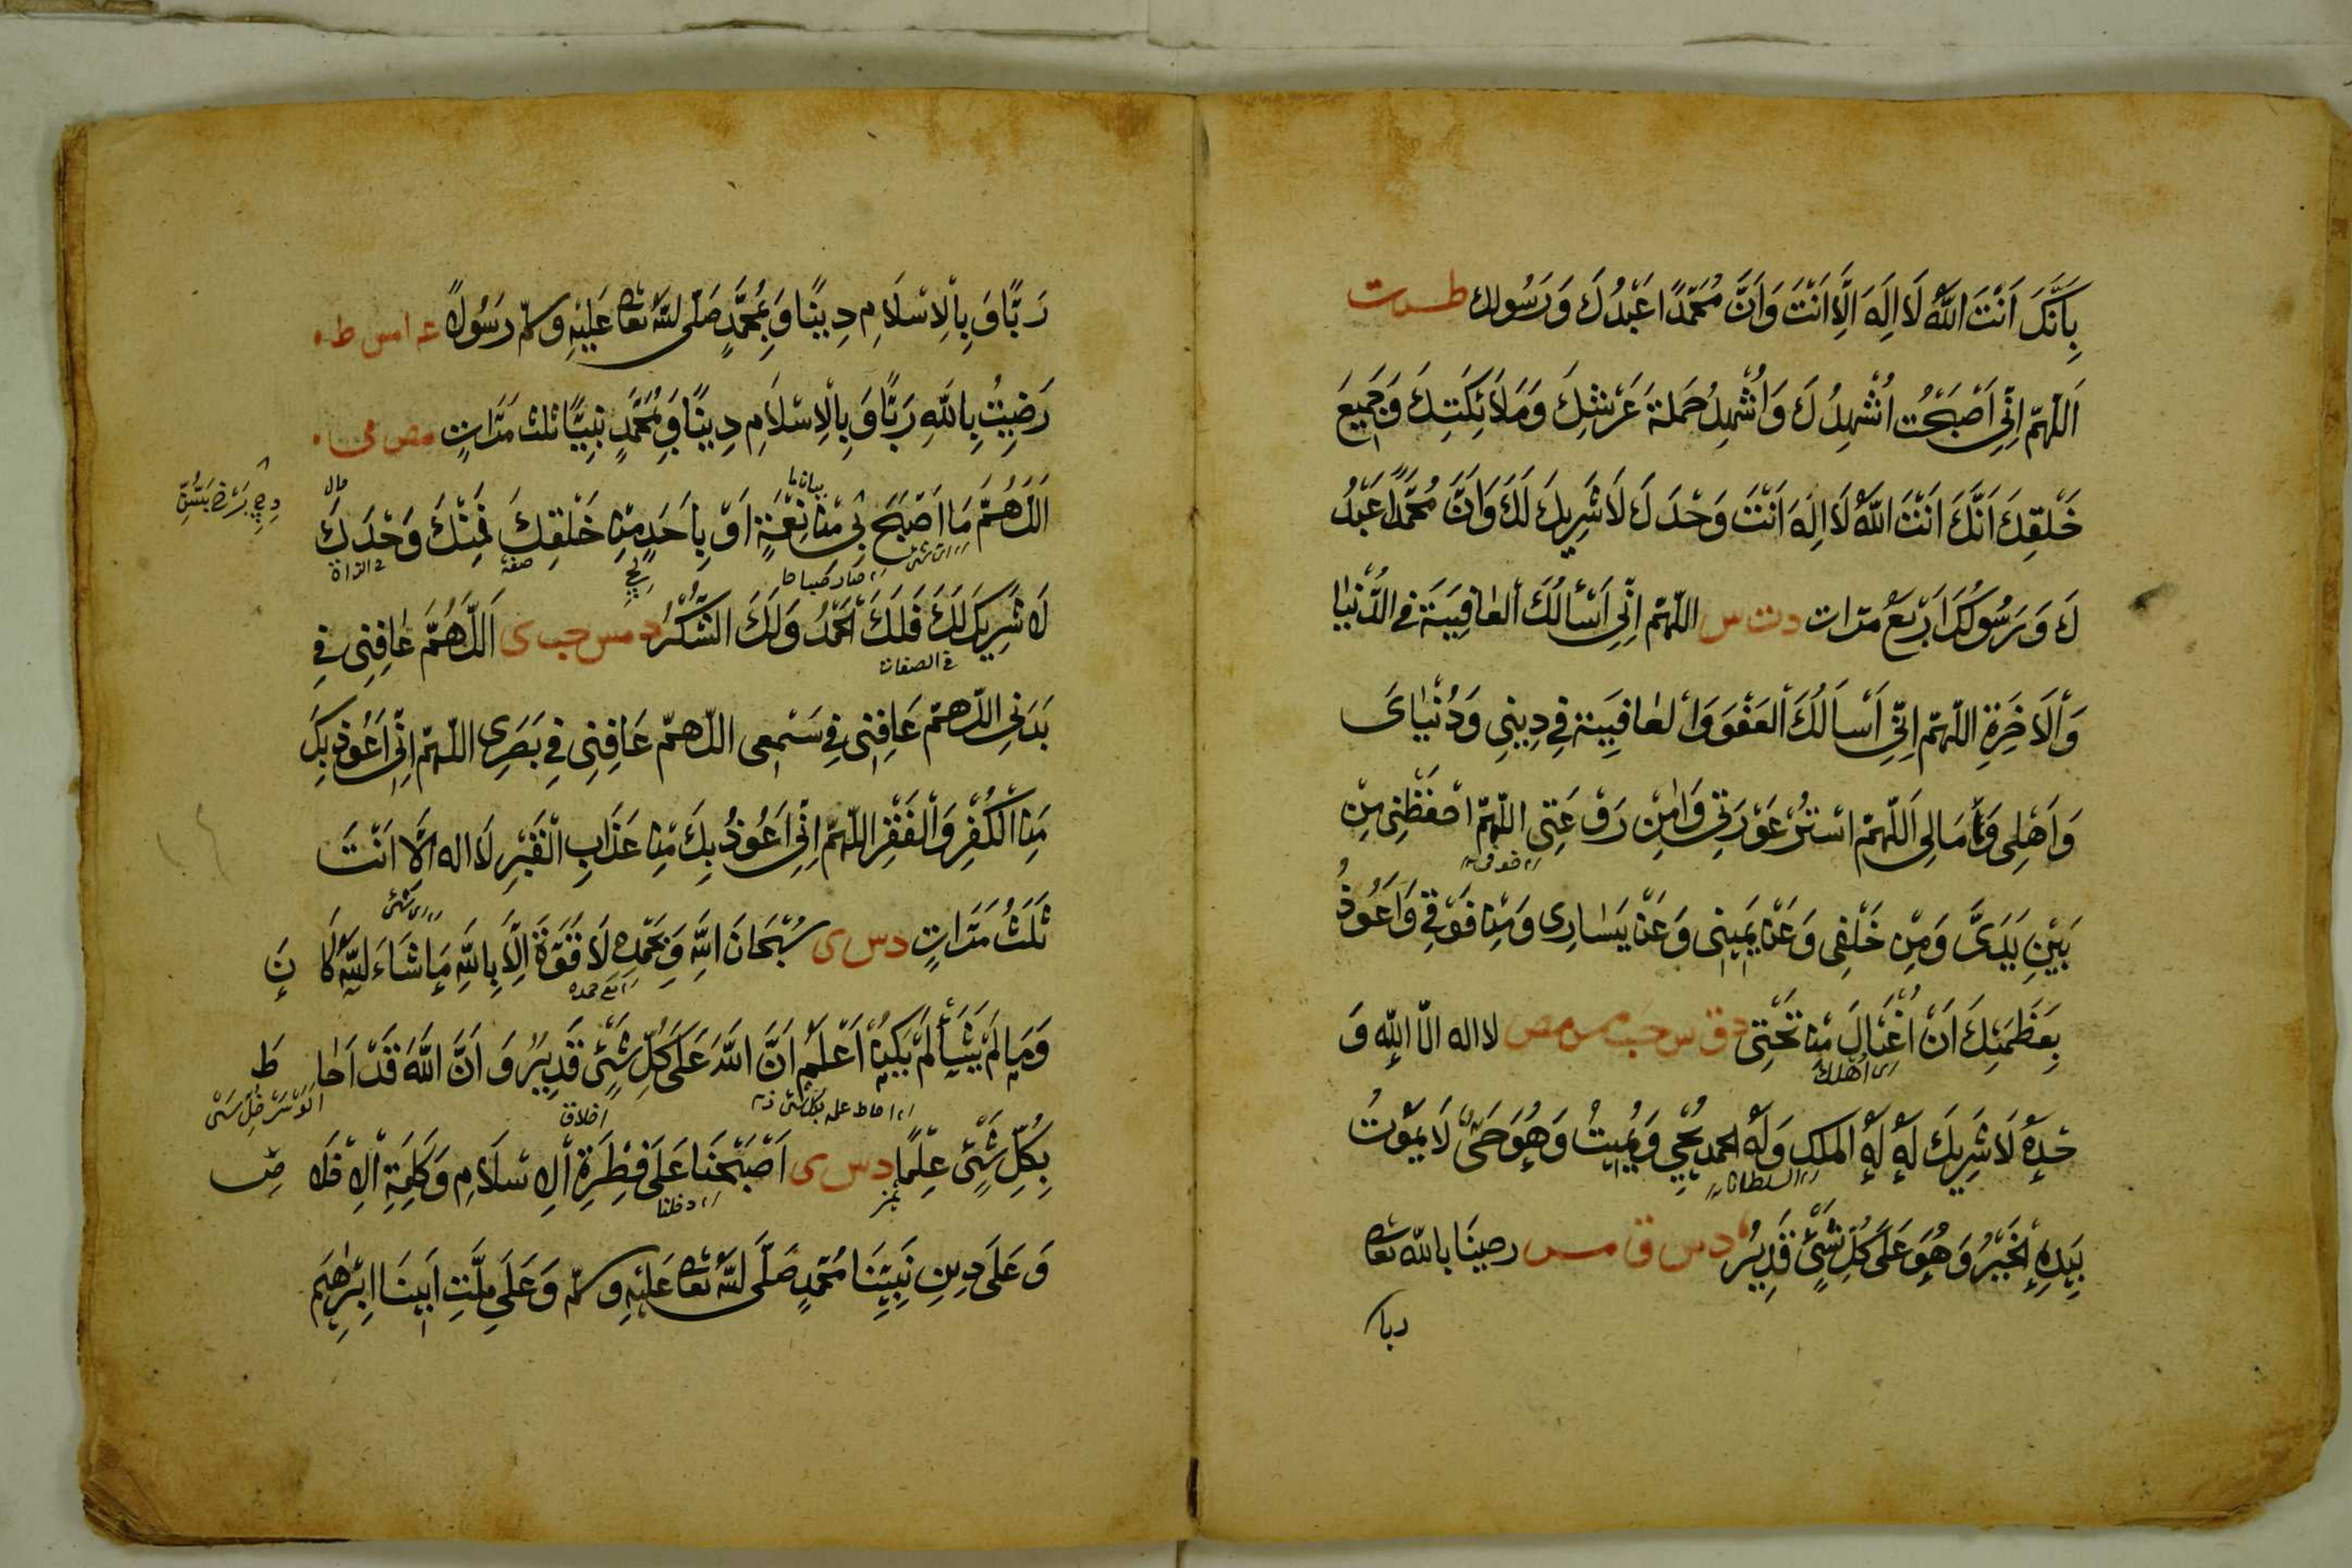 بِاَنَّكَ اَنْتَ اللهُ لَا اِلَهَ اِلَّا اَنْتَ وَاَنَّ مُحَمَّدًا عَبْدُكَ وَرَسُولك طس ت
اَللّٰهُمَّ اِنِّي اَصْبَحْتُ اُشْهِدُكَ وَاُشْهِدُ حَمَلَةَ عَرْشِكَ وَمَلَائِكَتِكَ وَجَمِيعَ
خَلْقِكَ اَنَّكَ اَنْتَ اللهُ لَا اِلَهَ اَنْتَ وَحْدَكَ لَا شَرِيكَ لَكَ وَاَنَّ مُحَمَّدًا عَبْدُ
كَ وَرَسُولُكَ اَرْبَعُ مرات د ت س اللّٰهُمَّ اِنِّي اَسْأَلُكَ الْعَافِيَةَ فِي الدُّنْيَا
وَالْاَخِرَةِ اللّٰهُمَّ اِنِّي اَسْأَلُكَ الْعَفْوَ وَالْعَافِيَةَ فِي دِينِي وَدُنْيَايَ
وَاَهْلِي وَمَالِي اَللّٰهُمَّ اسْتُرْ عَوْرَتِي وَاٰمِنْ رَوْعَتِي اللّٰهُمَّ احْفَظْنِي مِنْ
خوفي
بَيْنِ يَدَيَّ وَمِنْ خَلْفِي وَعَنْ يَمِينِي وَعَنْ يَسَارِي وَمِنْ فَوْقِي وَاَعُوذُ
بِعَظَمَتِكَ اَنْ اُغْتَالَ مِنْ تَحْتِي د ق س حب مس مص لا اله الّا اللهِ وَ
اى اُهْلك
حْدَهُ لَا شَرِيكَ لَهُ لَهُ الملك وَلَهُ الحمد يُحْيِي وَيُمِيتُ وَهُوَ حَيٌّ لَا يَمُوتُ
السلطان
بِيَدِهِ الْخَيْرُ وَهُوَ عَلَى كُلِّ شَيْءٍ قَدِيرٌ د س ق مس رضينَا بالله تعا
ربا
رَبًّا وَبِالْاِسْلَامِ دِينًا وَبِمُحَمَّدٍ صَلَّى اللهُ تعا عَلَيْهِ وسلّم رَسُولًا عه امس ط
رَضِيتُ بِاللهِ رَبًّا وَبِالْاِسْلَامِ دِينًا وَبِمُحَمَّدٍ نَبِيًّا ثَلٰث مَرَّاتٍ مص مى
بيان ما حال
اَللّٰهُمَّ مَا اَصْبَحَ بِي مِنْ نِعْمَةٍ اَوْ بِاَحَدٍ مِنْ خَلْقِكَ فَمِنْكَ وَحْدَكَ
اى شئ صار صباحا صفة فى الذات
لَا شَرِيكَ لَكَ فَلَكَ الْحَمْدُ وَلَكَ الشُّكْرُ د مس حب ى اَللّٰهُمَّ عَافِنِي فِي
فى الصفات
بَدَنِي اللّٰهمّ عَافِنِي فِي سَمْعِي اللّٰهمّ عَافِنِي فِي بَصَرِي اللّٰهمّ اِنِّي اَعُوذ بِكَ
مِنَ الْكُفْرِ وَالْفَقْرِ اللّٰهُمَّ اِنِّي اَعُوذُ بِكَ مِنْ عَذَابِ الْقَبْرِ لَا اله اِلَّا اَنْتَ
اى شئ
ثَلَثُ مَرَّاتٍ د س ى سُبْحَانَ اللهِ وَبِحَمْدِهِ لَا قُوَّةَ اِلَّا بِاللهِ مَا شَاءَ اللهُ كَا نَ
مع حمده
وَمَا لَمْ يَشَأْ لَمْ يَكُنْ اَعْلَمُ اَنَّ اللهَ عَلَى كُلِّ شَيْءٍ قَدِيرٌ وَاَنَّ اللهَ قَدْ اَحَا طَ
احاط علمه بكل شئ اخلاق
بِكُلِّ شَيْءٍ عِلْمًا د س ى اَصْبَحْنَا عَلَى فِطْرَةِ الْاِسْلَامِ وَكَلِمَةِ الْاِخْلَا صِ
تمز دخلنا
وَعَلَى دِينِ نَبِيِّنَا مُحَمَّدٍ صَلَّى اللهُ تعا عَلَيْهِ وسلّم وَعَلَى مِلَّتِ اَبِينَا اِبْرٰهِيمَ